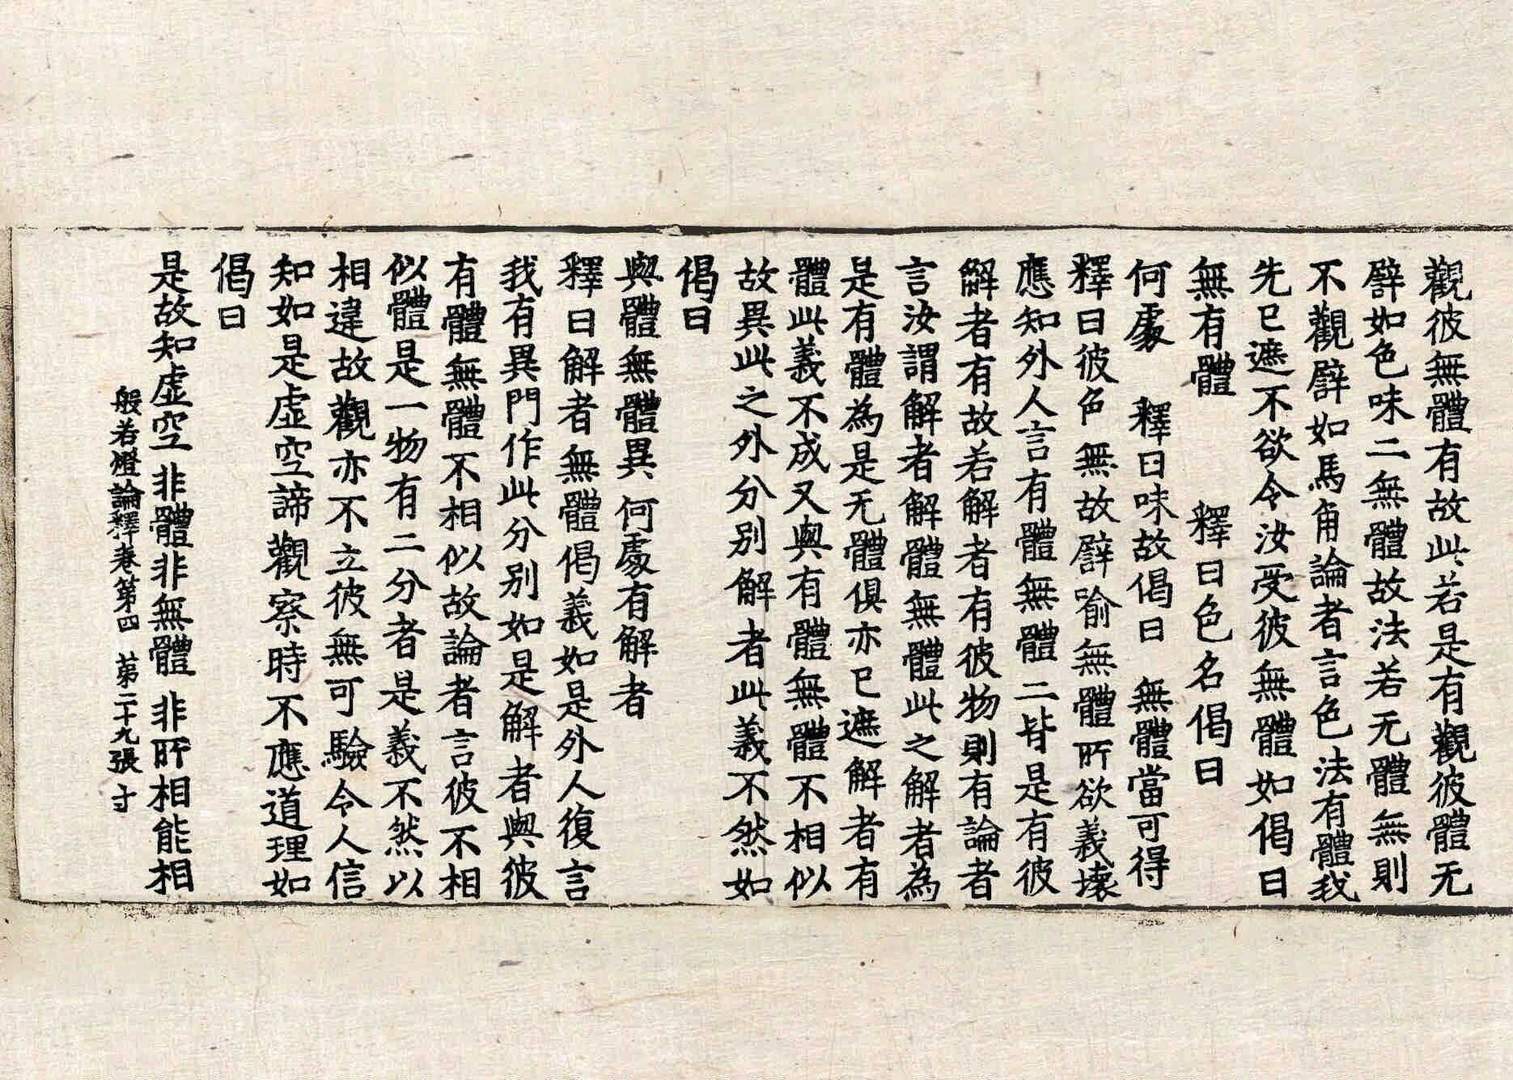 觀彼無體有故此若是有觀彼體无
譬如色味二無體故法若无體無則
不觀譬如馬角論者言色法有體我
先已遮不欲令汝受彼無體如偈曰
無有體　釋曰色名偈曰
何處　釋曰味故偈曰　無體當可得
釋曰彼色無故譬喻無體所欲義壞
應知外人言有體無體二皆是有彼
解者有故若解者有彼物則有論者
言汝謂解者解體無體此之解者為
是有體為是无體俱亦已遮解者有
體此義不成又與有體無體不相似
故異此之外分別解者此義不然如
偈曰
與體無體異　何處有解者
釋曰解者無體偈義如是外人復言
我有異門作此分別如是解者與彼
有體無體不相似故論者言彼不相
似體是一物有二分者是義不然以
相違故觀亦不立彼無可驗令人信
知如是虛空諦觀察時不應道理如
偈曰
是故知虛空　非體非無體　非所相能相
般若燈論釋卷第四　第二十九張　寸